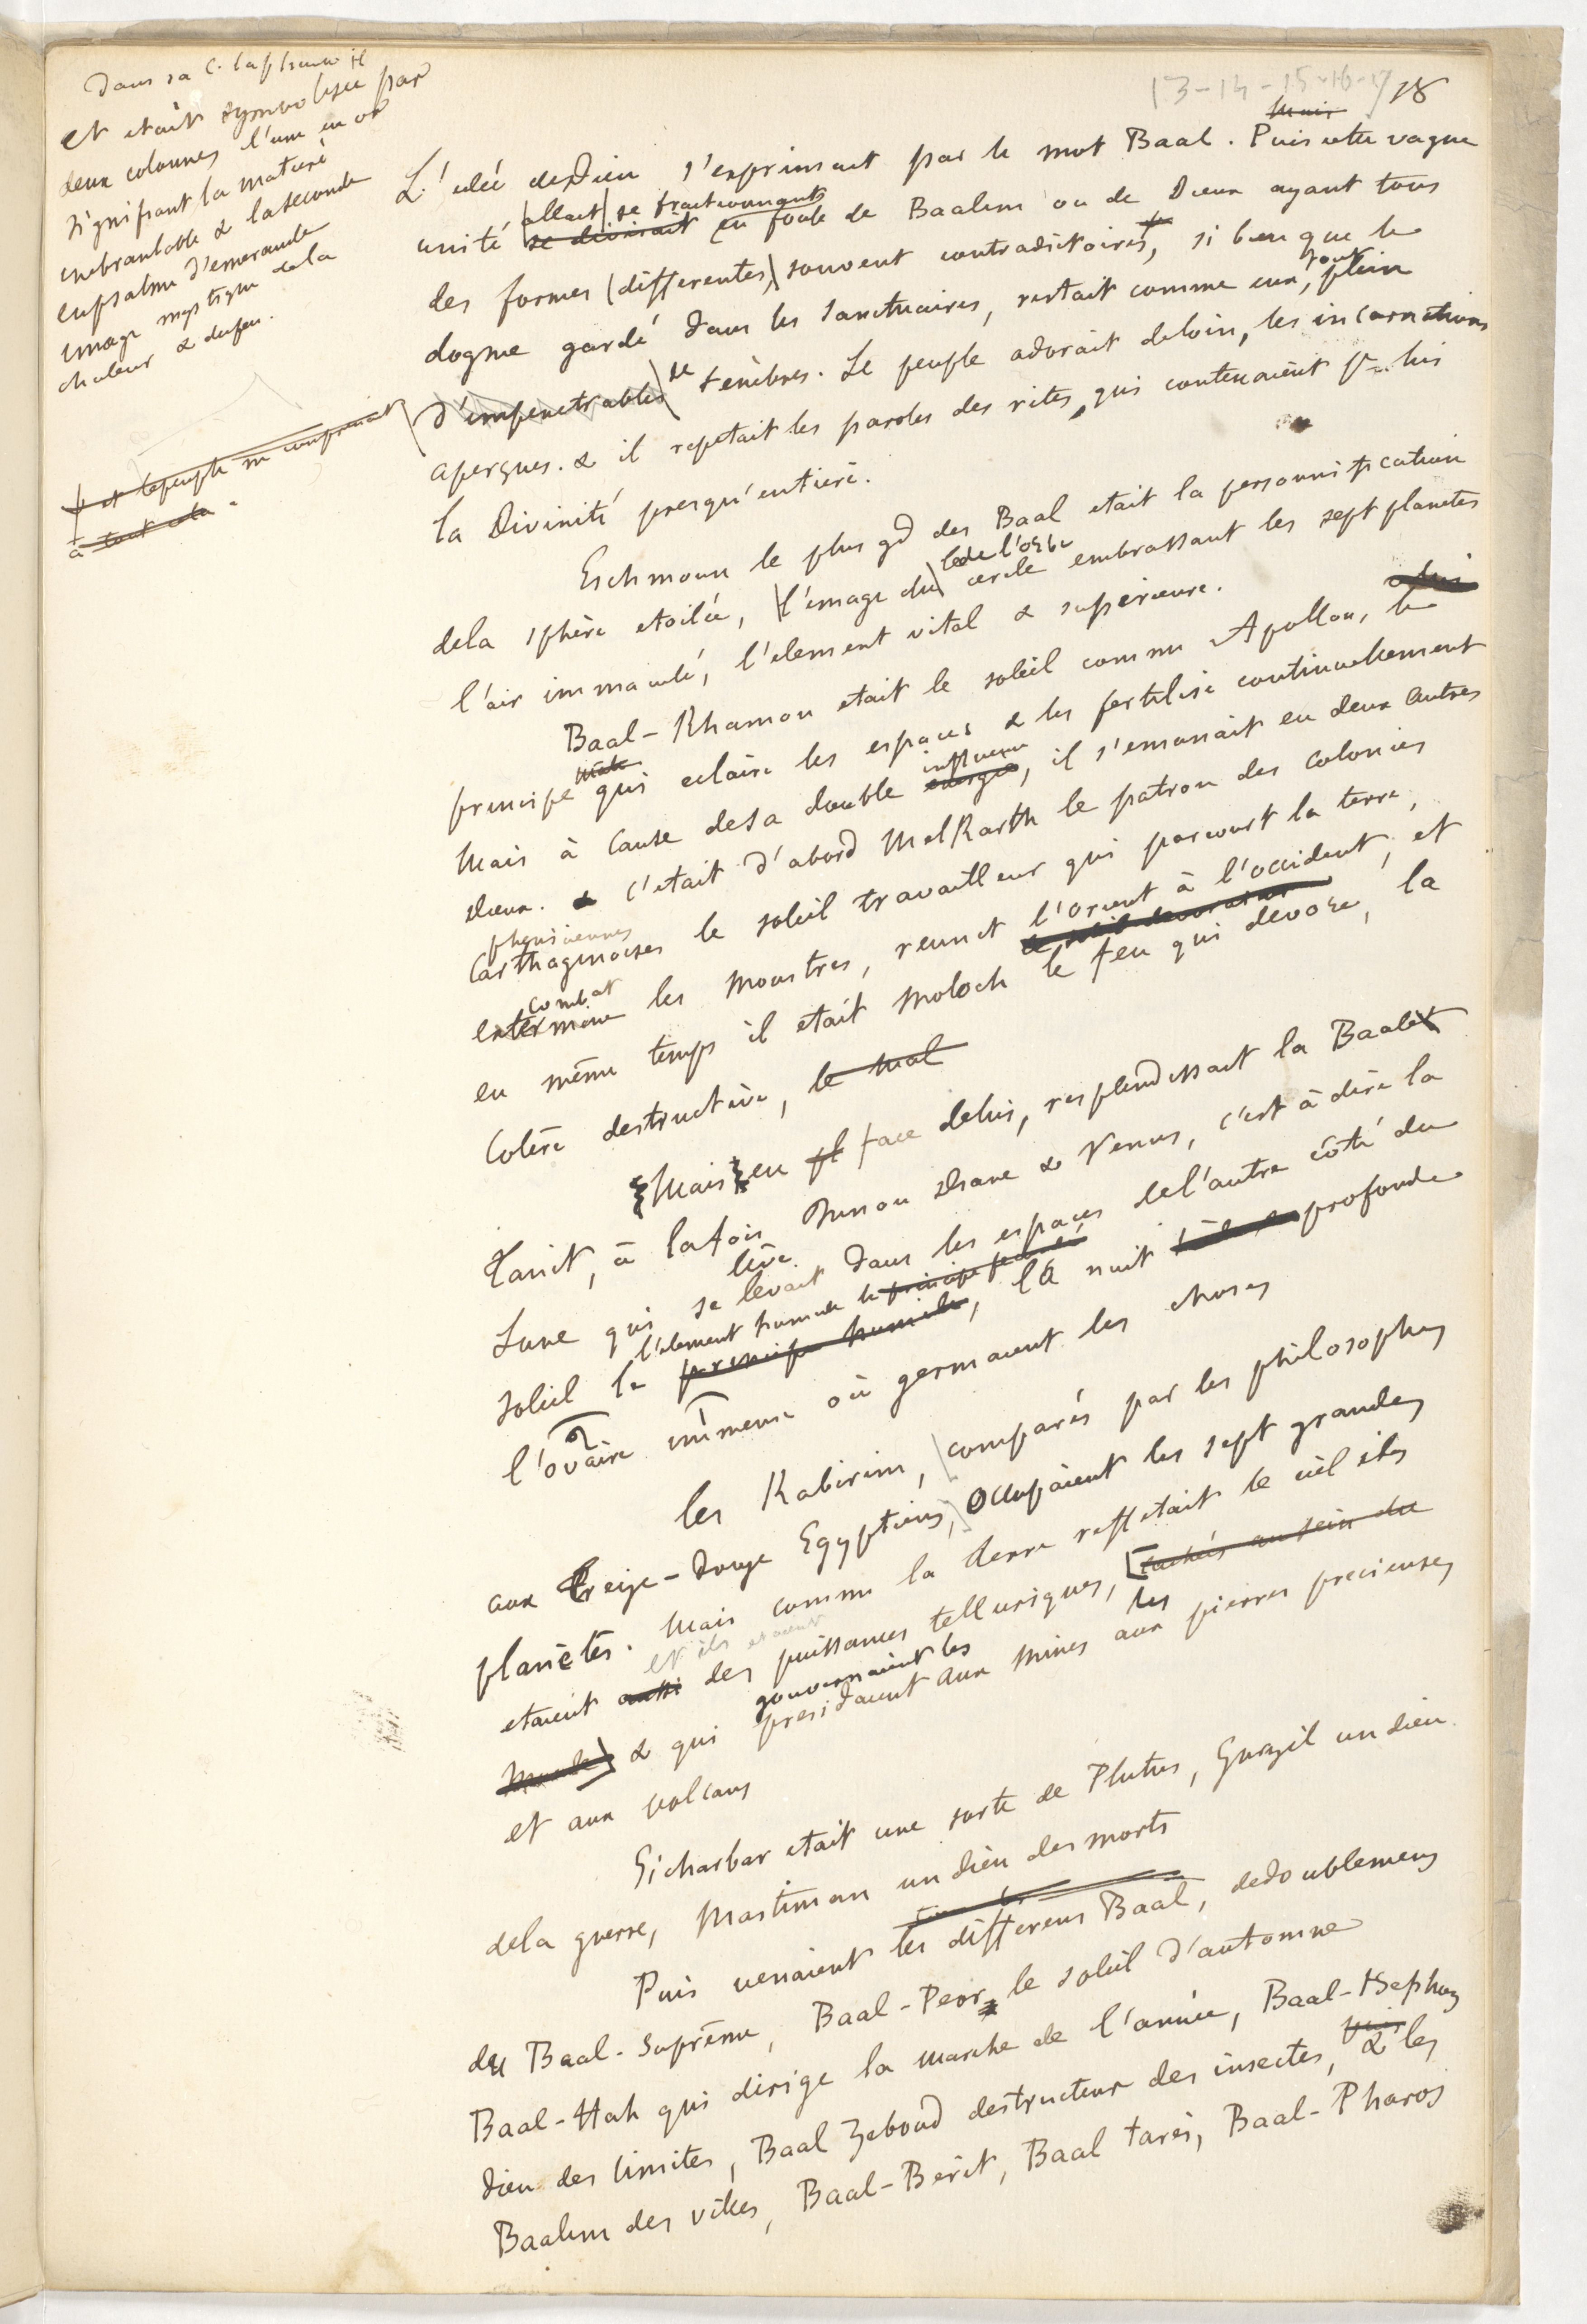 Dans sa
et etait symbolisée par
deux colonnes l'une en or
signifiant la matière
inebranlable & la seconde
en psalme d'emeraude
image mystique de la
chaleur & du feu.
et le peuple ne comprenait
à tout cela.
13-14-15-16-17
18
Mais
L'idée de Dieu s'exprimait par le mot Baal. Puis cette vague
allait se fractionnant
unité se divisait en foule de Baalim ou de Dieux ayant tous
des formes (differentes,) souvent contradictoires, si bien que le
tout
dogme gardé dans les sanctuaires, restait comme eux, plein
de
d'impenetrables tenèbres. Le peuple adorait de loin, les incarnations
aperçues. & il repetait les paroles des rites, qui contenaient pr lui
la Divinité presqu'entière.
Eschmoun le plus gd des Baal etait la personnification
de l'orbe
de la sphère etoilée, l'image du cercle embrassant les sept planetes
l'air immaculé, l'element vital & superieure.
Baal-Khamon etait le soleil comme Apollon, le
mâle
principe qui eclaire les espaces & les fertilise continuellement
influence
Mais à cause de sa double energie, il s'emanait en deux autres
dieux. & c'etait d'abord MelKarth le patron des colonies
pheniciennes
Carthaginoises le soleil travailleur qui parcourt la terre,
combat
extermine les monstres, reunit l'orient à l'occident, et
le soleil devorateur
en même temps il etait Moloch le feu qui devore, la
Colère destructive, le mal
Mais en face de lui, resplendissait la Baalet
Tanit, à la fois Junon Diane & Venus, c'est à dire la
lève
Lune qui se levait dans les espaces de l'autre côté du
l'element humide le principe femelle
soleil le principe humide, la nuit profonde
l'ovaire immense où germaient les choses
les Kabirim, comparés par les philosophes
aux Treize-Douze Egyptiens, occupaient les sept grandes
planètes. Mais comme la terre refletait le ciel ils
et ils etaient
etaient aussi des puissances telluriques, cachés au sein du
gouvernaient les
les
monde & qui presidaient aux mines aux pierres precieuses
et aux volcans
Sicharbar etait une sorte de Plutus, Gurzil un dieu
de la guerre, Mastiman un dieu des morts
Puis venaient les differens Baal, dedoublemens
du Baal-Suprême, Baal-Peor, le soleil d'automne
Baal-Hah qui dirige la marche de l'année, Baal-Tsephon
dieu des limites, Baal Zeboud destructeur des insectes, & les
Baalim des villes, Baal-Berit, Baal tares, Baal-Pharos